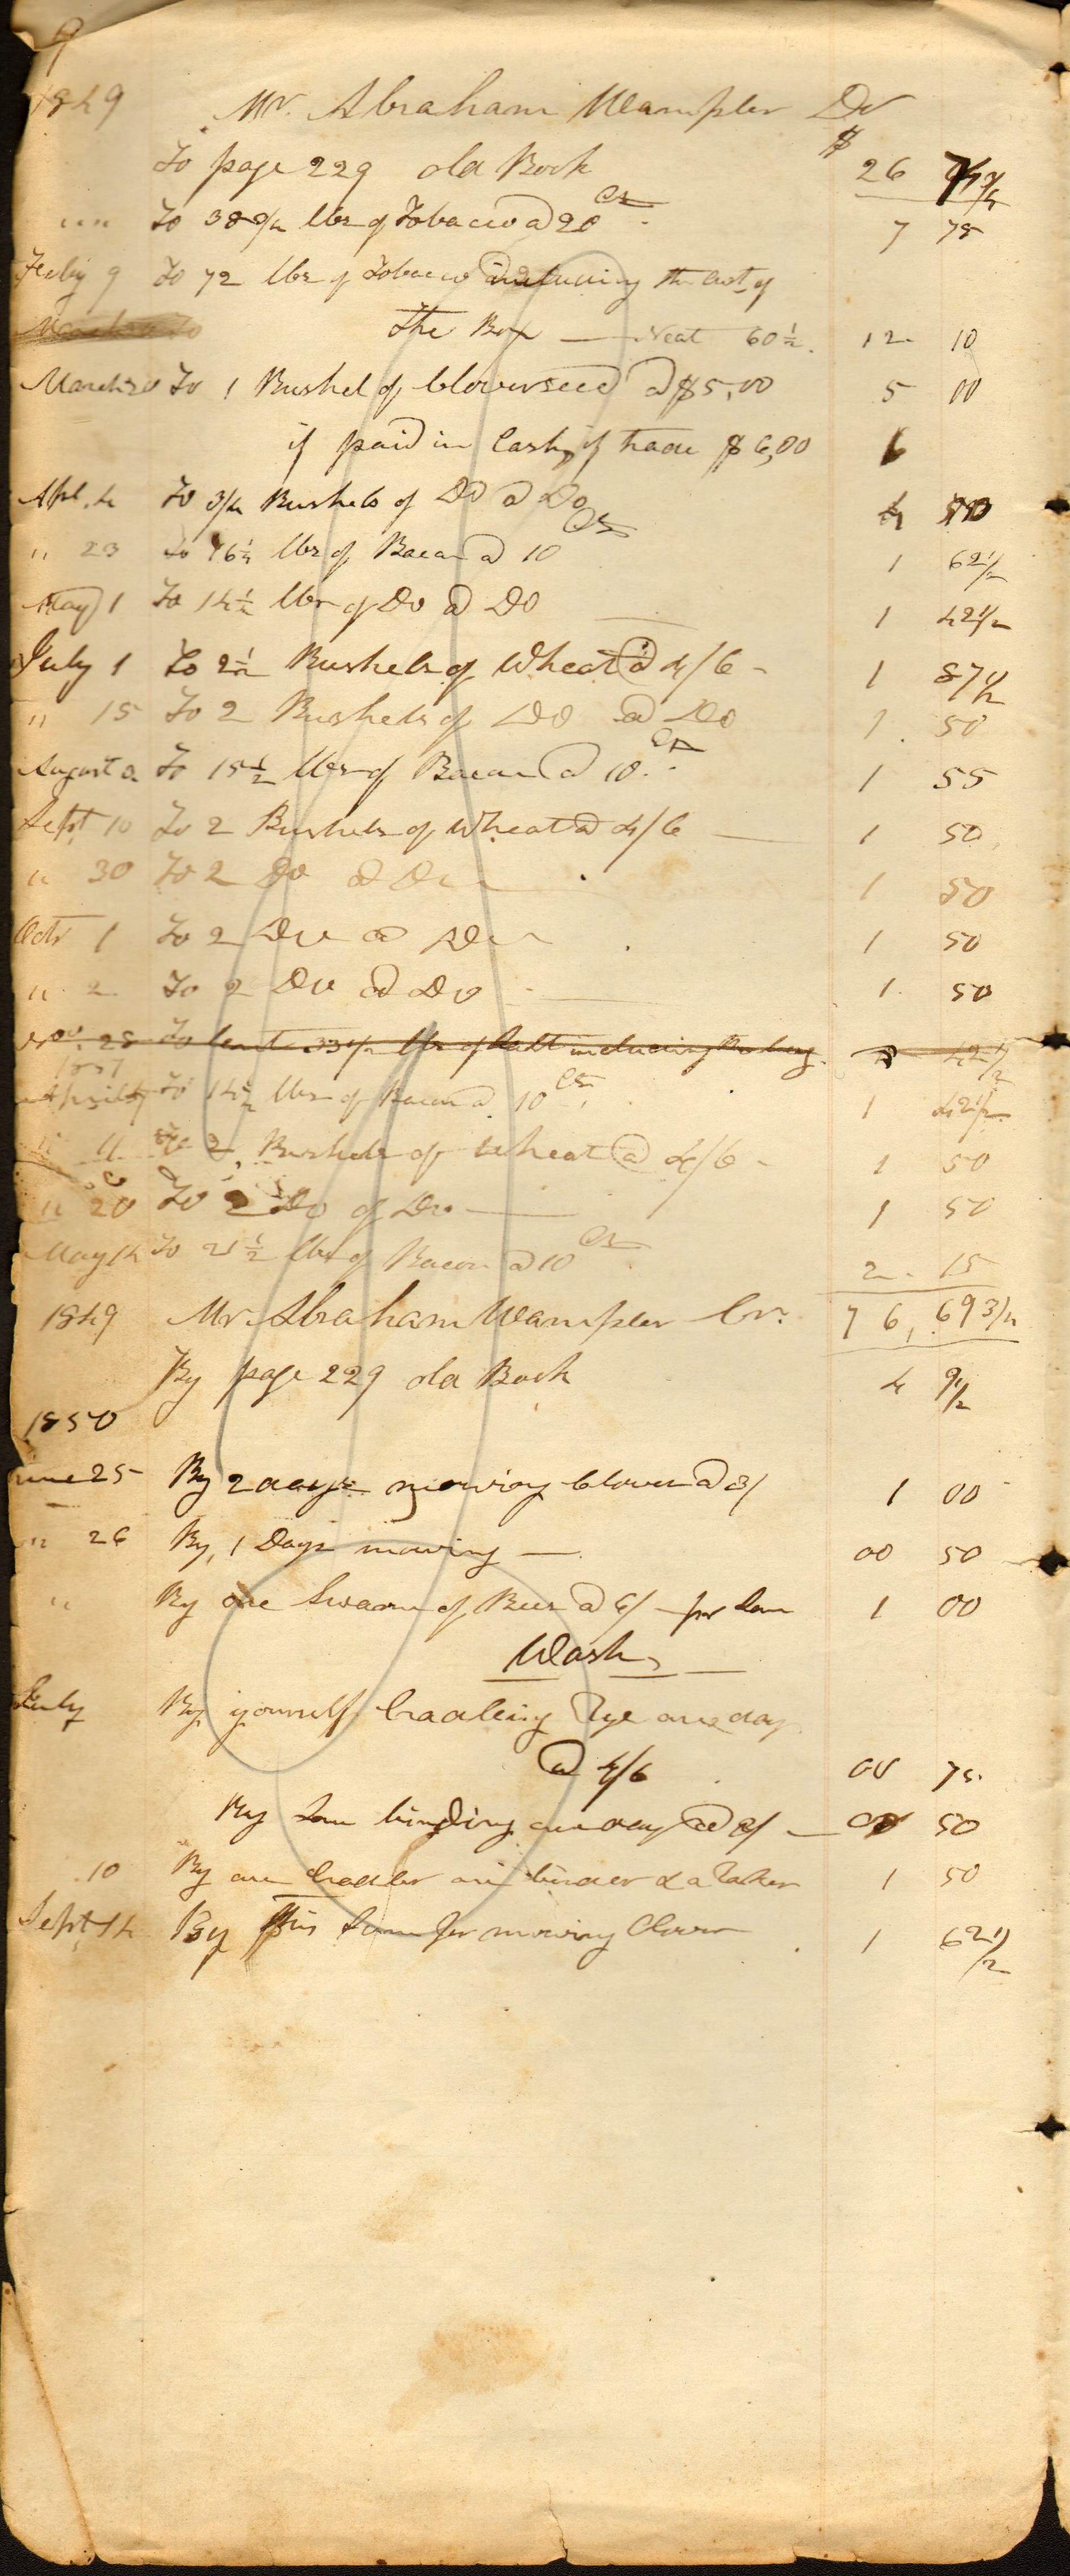 9
1849 Mr. Abraham Wampler Dr
$
To page 229 old Book 26
" " To 38 3/4 lbs of Tobacco @ 20 Cts. 7 75
Feb'y 9 To 72 lbs of Tobacco including the Cost of
The Box — Neat 60 1/2. 12 10
March 20 To 1 Bushel of Cloverseed @ $5,00 5 00
if paid in Cash, if trade $6,00 6
Apl. 4 To 3/4 Bushels of Do @ Do 4 50
" 23 To 16 1/4 lbs of Bacon @ 10 Cts 1 62 1/2
May 1 To 14 1/4 lbs of Do @ Do 1 42 1/2
July 1 To 2 1/2 Bushels of Wheat @ 4/6 - 1 87 1/2
" 15 To 2 Bushels of Do @ Do 1. 50
August 2 To 15 1/2 lbs of Bacon @ 10 Cts 1 55
Sept 10 To 2 Bushels of Wheat @ 4/6 — 1 50
" 30 To 2 Do @ Do — 1 50
Octr 1 To 2 Do @ Do 1 50
" 2 To 2 Do @ Do 1. 50
Nov. 28 To 33 1/2 lbs of Salt including 42 1/2
1851
April To 14 1/4 lbs of Bacon @ 10 Cts. 1 42 1/2
" 11 To 2 Bushels of Wheat @ 4/6 - 1 50
" 20 To 2 Do of Do. — 1 50
May 14 To 21 1/2 lbs of Bacon @ 10 Cts 2. 15
1849 Mr. Abraham Wampler Cr. 76,69 3/4
By page 229 old Book 4 9 1/2
1850
June 25 By 2 days mowing Clover @ 3/ 1 00
" 26 By, 1 Days mowing — 00 50
" By one Swarm of Bees @ 6/ — per Sam 1 00
Wash
July By yourself Cradling Rye one day
@ 4/6 00 75.
By Sam binding one day @ 3/ — 00 50
10 By one Cradler one binder & a Raker 1 50
Sept 14 By Sam for mowing Clover 1 62 1/2